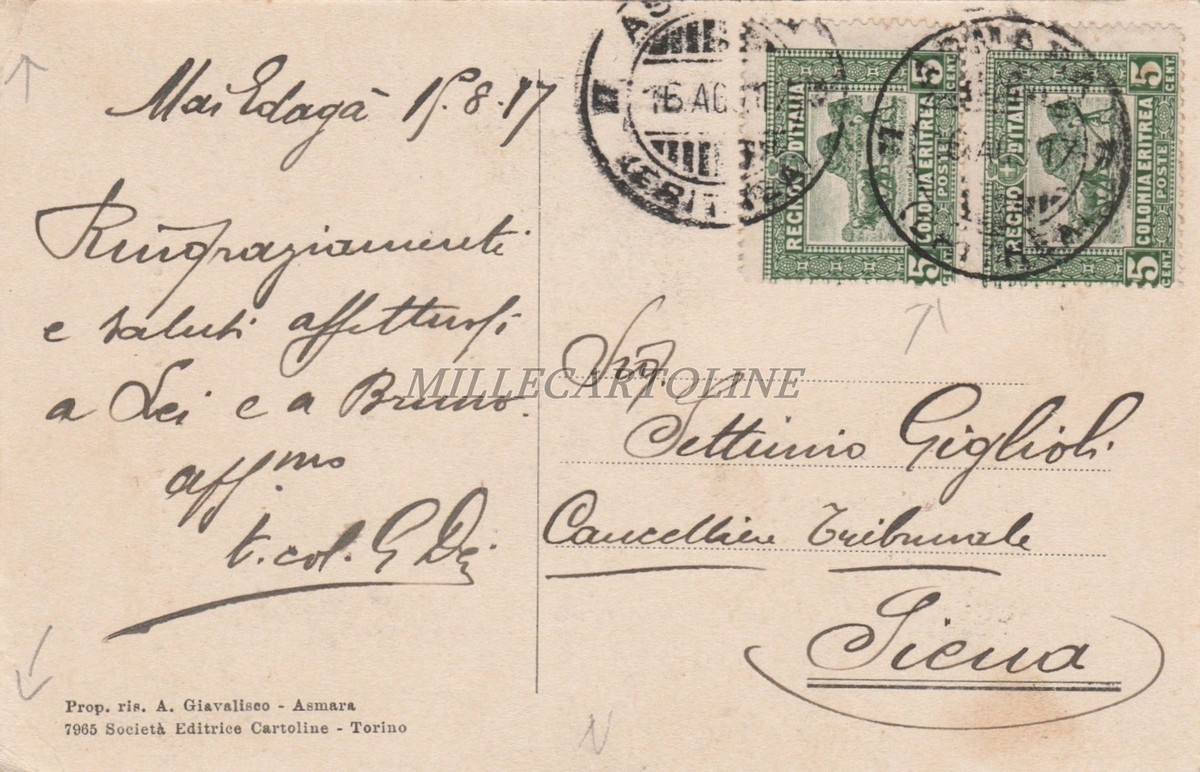 Mai Edagà 15.8.17
Ringraziamenti
e saluti affettuosi
a Lei e a Bruno.
aff.mo
t. col. G Dei
Prop. ris. A. Giavalisco - Asmara
7965 Società Editrice Cartoline - Torino
16 AG
ERITREA
REGNO D'ITALIA
COLONIA ERITREA
POSTE
5 CENT.
5
REGNO D'ITALIA
COLONIA ERITREA
POSTE
5 CENT.
5 CENT.
MILLECARTOLINE
Sig.
Settimio Giglioli
Cancelliere Tribunale
Siena